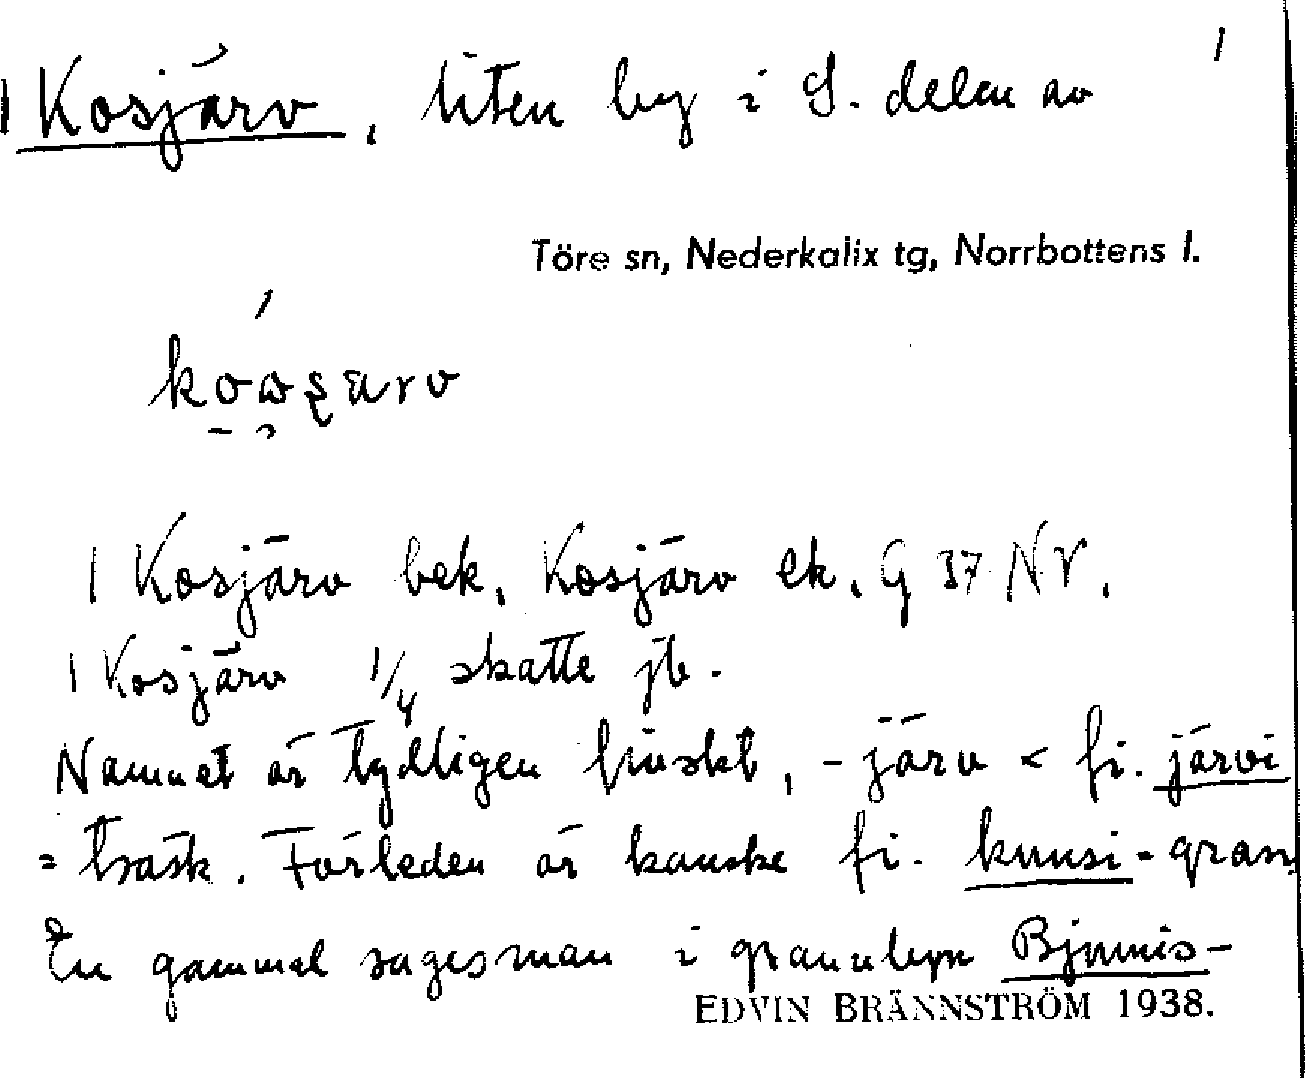 1
Kosjärv, liten by i S. delen av
Töre sn, Nederkalix tg, Norrbottens l.
Kosjärv bek, Kosjärv ek. G 37 NV.
Kosjärv 1/4 skatte jb.
Namnet är tydligen finskt, -järv < fi. järvi
= träsk. Förleden är kanske fi. kuusi = gran.
En gammal sagesman i grannbyn
EDVIN BRÄNNSTRÖM 1938.